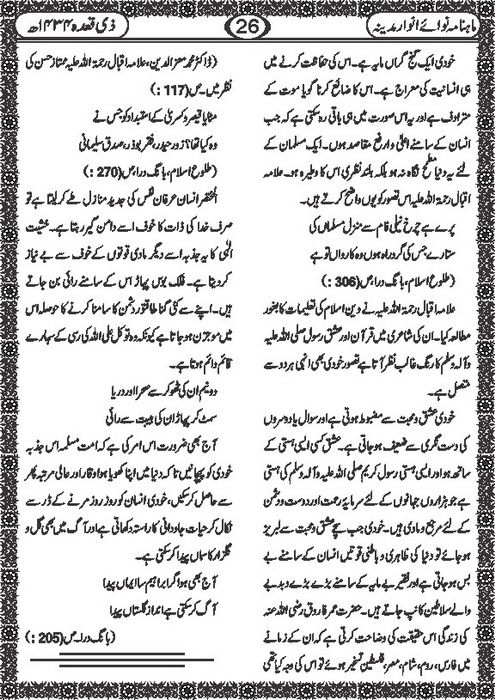 ماہنامہ نوائے انوار مدینہ
26
ذی قعدہ ۱۴۳۴ھ
خودی ایک گنج گراں مایہ ہے۔ اس کی حفاظت کرنے میں
ہی انسانیت کی معراج ہے۔ اس کا ضائع کرنا گویا موت کے
مترادف ہے اور یہ اس صورت میں ہی باقی رہ سکتی ہے کہ جب
انسان کے سامنے اعلیٰ و ارفع مقاصد ہوں۔ ایک مسلمان کے
لئے یہ دنیا مطمح نگاہ نہ ہو بلکہ بلند نظری اس کا وطیرہ ہو۔ علامہ
اقبال رحمۃ اللہ علیہ اس تصور کو یوں واضح کرتے ہیں۔
پرے ہے چرخ نیلی فام سے منزل مسلماں کی
ستارے جس کی گرد راہ ہوں وہ کارواں تو ہے
(طلوع اسلام، بانگ درا ص(306 :)
علامہ اقبال رحمۃ اللہ علیہ نے دین اسلام کی تعلیمات کا بغور
مطالعہ کیا۔ ان کی شاعری میں قرآن اور عشق رسول صلی اللہ علیہ
وآلہ وسلم کا رنگ غالب نظر آتا ہے تصور خودی بھی انہی ہر دو سے
متصل ہے۔
خودی عشق و محبت سے مضبوط ہوتی ہے اور سوال یا دوسروں
کی دست نگری سے ضعیف ہو جاتی ہے۔ عشق کسی ایسی ہستی کے
ساتھ ہو اور ایسی ہستی رسول کریم صلی اللہ علیہ وآلہ وسلم کی ہستی
ہے جو ہزاروں جہانوں کے لئے سرمایۂ رحمت اور دوست و دشمن
کے لئے مرجع و ہادی ہیں۔ خودی جب سچے عشق و محبت سے لبریز
ہو جائے تو دنیا کی ظاہری و باطنی قوتیں انسان کے سامنے بے
بس ہو جاتی ہے اور فقیر بے مایہ کے سامنے بڑے بڑے دبدبے
والے سلاطین کانپ جاتے ہیں۔ حضرت عمر فاروق رضی اللہ عنہ
کی زندگی اس حقیقت کی وضاحت کرتی ہے کہ ان کے زمانے
میں فارس، روم، شام، مصر، فلسطین تسخیر ہوئے تو اس کی وجہ کیا تھی
(ڈاکٹر محمد معز الدین، علامہ اقبال رحمۃ اللہ علیہ ممتاز حسن کی
نظر میں۔ ص(117 :)
مٹایا قیصر و کسریٰ کے استبداد کو جس نے
وہ کیا تھا؟ زور حیدر، فقر بوذر، صدق سلیمانی
(طلوع اسلام، بانگ درا ص(270 :)
المختصر انسان عرفان نفس کی جدید منازل طے کر لیتا ہے تو
صرف خدا کی ذات کا خوف اسے دامن گیر رہتا ہے۔ خشیت
الٰہی کا یہ جذبہ اسے دیگر مادی قوتوں کے خوف سے بے نیاز
کر دیتا ہے۔ فلک بوس پہاڑ اس کے سامنے رائی بن جاتے
ہیں۔ اپنے سے کئی گنا طاقتور دشمن کا سامنا کرنے کا حوصلہ اس
میں موجزن ہو جاتا ہے کیونکہ وہ توکل علی اللہ کی رسی کے سہارے
قائم و دائم ہوتا ہے۔
دو نیم ان کی ٹھوکر سے صحرا اور دریا
سمٹ کر پہاڑ ان کی ہیبت سے رائی
آج بھی ضرورت اس امر کی ہے کہ امت مسلمہ اس جذبہ
خودی کو پہچانیں تاکہ دنیا میں اپنا کھویا ہوا وقار اور عالی مرتبہ پھر
سے حاصل کر سکیں، خودی انسان کو روز روز مرنے کے ڈر سے
نکال کر حیات جاودانی کا راستہ دکھاتی ہے اور آگ میں بھی گل و
گلزار کا سماں پیدا کر سکتی ہے۔
آج بھی ہو اگر ابراہیم سا ایماں پیدا
آگ کر سکتی ہے انداز گلستاں پیدا
(بانگ درا ۔ ص(205 :)